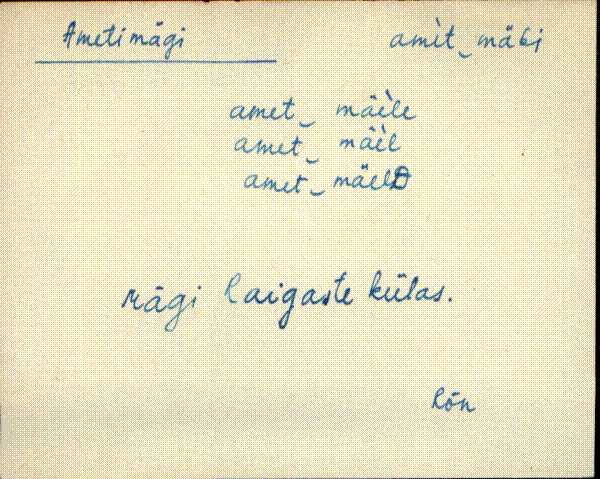 Ametimägi amìt‿mäki
amet‿ mäèle
amet‿ mäèl
amet‿ mäelD
Mägi Laigaste külas.
Rõn